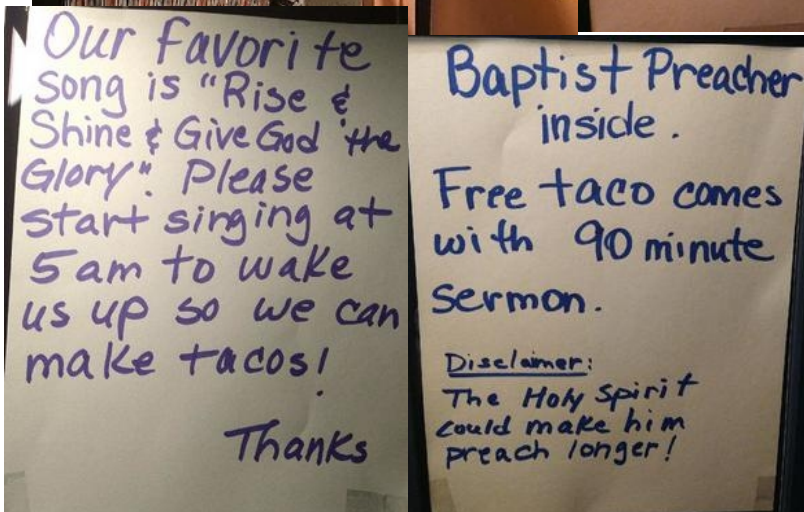 Our favorite
song is "Rise &
Shine & Give God the
Glory". Please
start singing at
5am to wake
us up so we can
make tacos!
Thanks
Baptist Preacher
inside.
Free taco comes
with 90 minute
sermon.
Disclaimer:
The Holy Spirit
could make him
preach longer!